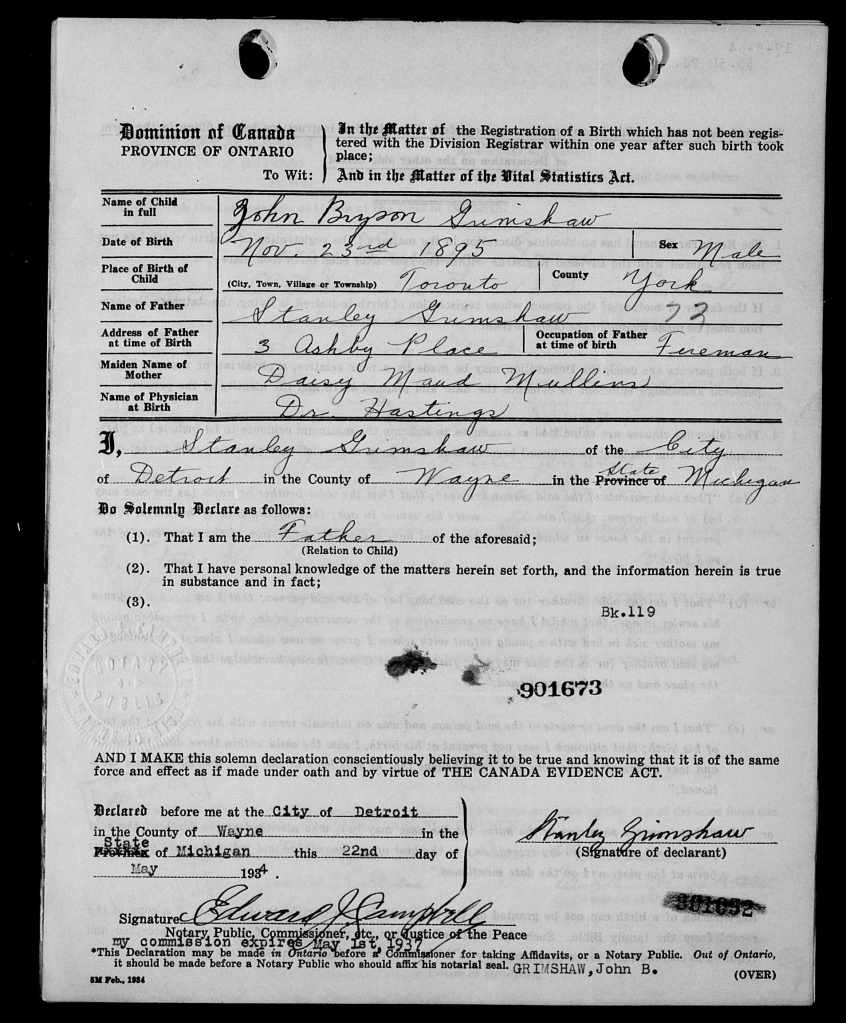 Dominion of Canada
PROVINCE OF ONTARIO
To Wit:
In the Matter of the Registration of a Birth which has not been regis-
tered with the Division Registrar within one year after such birth took
place;
And in the Matter of the Vital Statistics Act.
Name of Child in full John Bryson Grimshaw
Date of Birth Nov. 23rd 1895 Sex Male
Place of Birth of Child (City, Town, Village or Township) Toronto County York
Name of Father Stanley Grimshaw 23
Address of Father at time of Birth 3 Ashby Place Occupation of Father at time of birth Fireman
Maiden Name of Mother Daisy Maud Mullins
Name of Physician at Birth Dr. Hastings
I, Stanley Grimshaw of the City
of Detroit in the County of Wayne in the Province of State Michigan
Do Solemnly Declare as follows:
(1). That I am the Father of the aforesaid;
(Relation to Child)
(2). That I have personal knowledge of the matters herein set forth, and the information herein is true
in substance and in fact;
(3).
Bk.119
901673
AND I MAKE this solemn declaration conscientiously believing it to be true and knowing that it is of the same
force and effect as if made under oath and by virtue of THE CANADA EVIDENCE ACT.
Declared before me at the City of Detroit
in the County of Wayne in the
State
Province of Michigan this 22nd day of
May 1934.
Stanley Grimshaw
(Signature of declarant)
901652
Signature Edward J. Campbell
Notary Public, Commissioner, etc., or Justice of the Peace
my commission expires May 1st, 1937
*This Declaration may be made in Ontario before a Commissioner for taking Affidavits, or a Notary Public. Out of Ontario,
it should be made before a Notary Public who should affix his notarial seal. GRIMSHAW,John B.
5M Feb., 1934
(OVER)